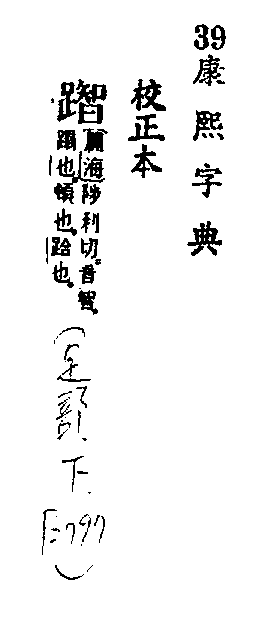 39
康熙字典
校正本
篇海陟利切。音智。
蹋也。頓也。跲也。
(足部下.
797)